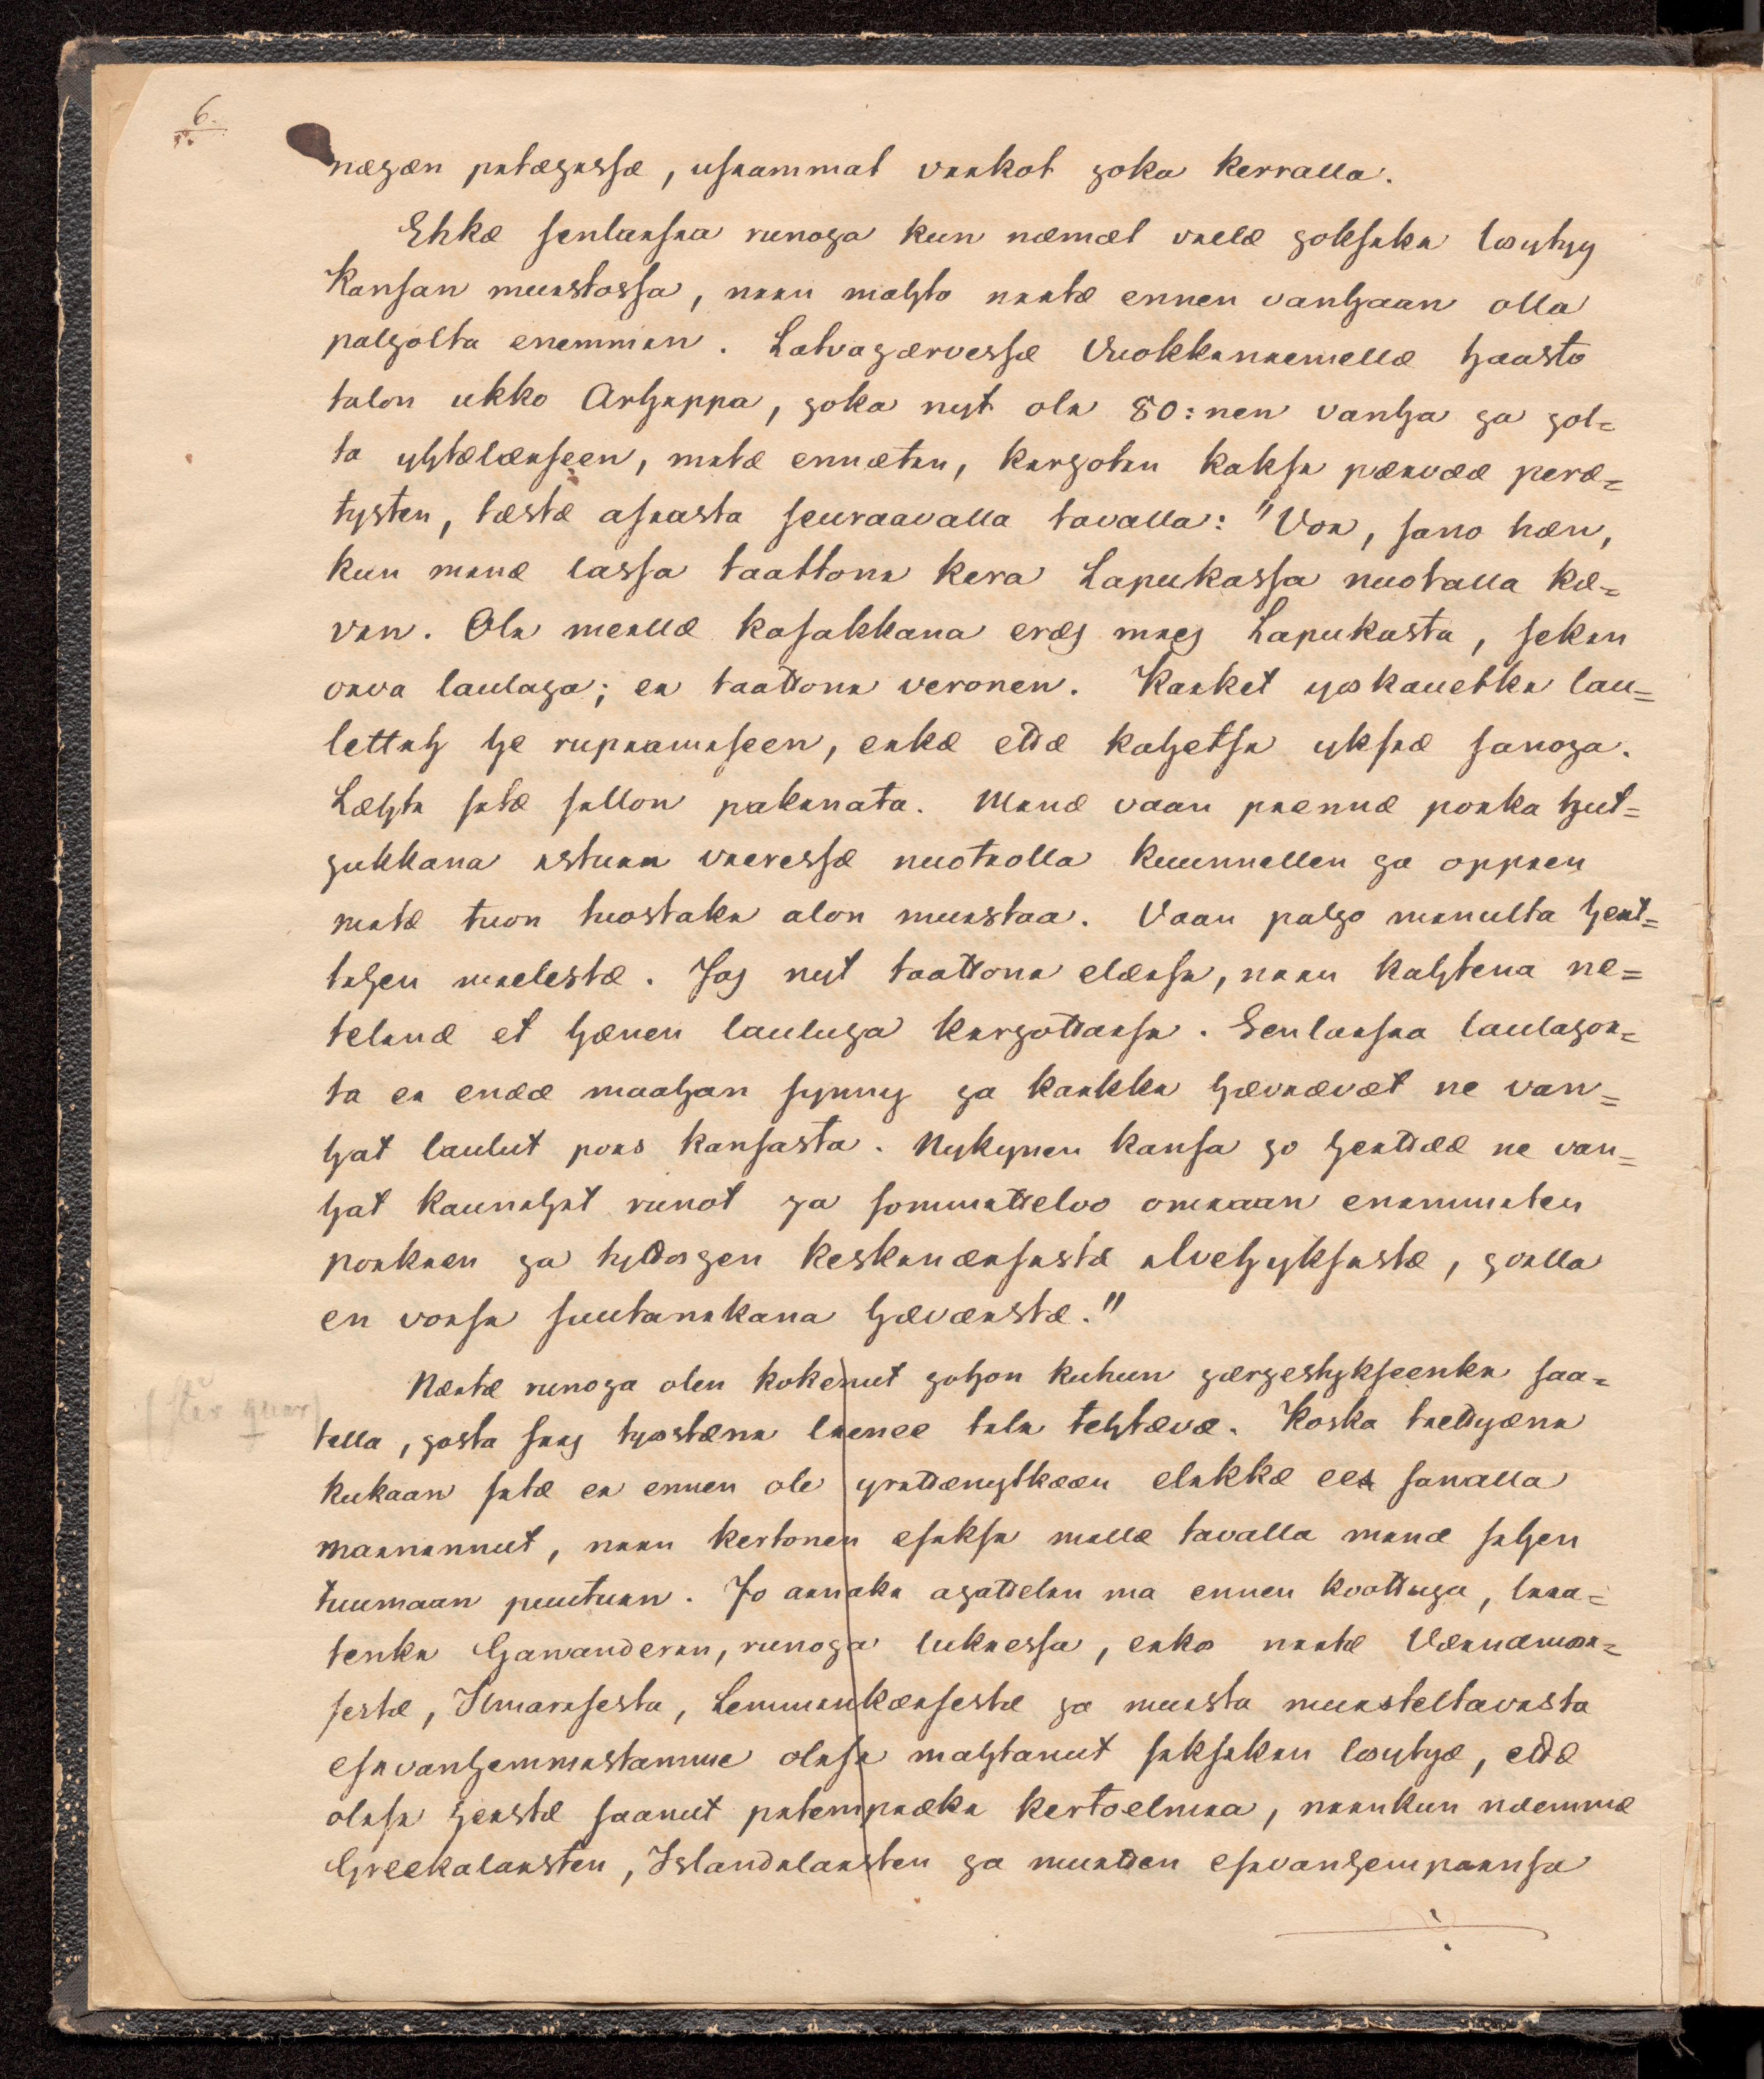 6.
næjæn pitæjissæ, usiammat viikot joka kerralla.
Ehkæ senlaisia runoja kun næmæt vielæ joksiki lœytyy
Kansan muistossa, niin mahto niitæ ennen vanhaan olla
paljolta enemmin. Latvajærvessæ Vuokkiniemellæ haasto
talon ukko Arhippa, joka nyt oli 80:nen vanha ja jol=
ta yhtælæiseen, mitæ ennætin, kirjotin kaksi pæivææ peræ=
tysten, tæstæ asiasta seuraavalla tavalla: "Voi, sano hæn,
kun minæ lassa taattoni kera Lapukassa nuotalla kæ=
vin. Oli meillæ kasakkana eræs mies Lapukasta, sekin
hyvæ laulaja; ei taattoni veronen. Kaiket yœkauetki lau=
lettih he rupiamiseen, eikæ ettæ kahetsi yksiæ sanoja.
Læhti sitæ sillon pakinata. Minæ vaan piennæ poika hut=
jukkana istuin vieressæ nuotiolla kuunnellen ja oppien
mitæ tuon tuostaki alon muistaa. Vaan paljo minulta heit=
tihen mielestæ. Jos nyt taattoni elæisi, niin kahtena ne=
telinæ et hænen lauluja kirjottaisi. Senlaisia laulajoi=
ta ei enææ maahan synny ja kaikki hæviævæt ne van=
hat laulut pois kansasta. Nykynen kansa jo heittææ ne van=
hat kaunihit runot ja sommitteloo omiaan enimmiten
poikien ja tyttœjen keskinæisistæ ilvehyksistæ, joilla
en voisi suutanikana hæväistæ."
Næitæ runoja olen kokenut johon kuhun jærjestykseenki saa=
tella, josta siis tyœstæni lienee tili tehtævæ. Koska tiettyæni
kukaan sitæ ei ennen ole yrittænytkææn elikkæ ees sanalla
maininnut, niin kertonen esiksi millæ tavalla minæ siihen
tuumaan puutuin. Jo ainaki ajattelin ma ennen koottuja, liia=
tenki Gananderin, runoja lukiessa, eikœ niitæ Væinæmœi=
sestæ, Ilmarisesta, Lemminkæisestæ ja muista muisteltavista
esivanhemmistamme olisi mahtanut siksikin lœytyæ, ettæ
olisi heistæ saanut pitempiæki kertoelmia, niinkun næemmæ
Greekalaisten, Islandilaisten ja muitten esivanhempainsa